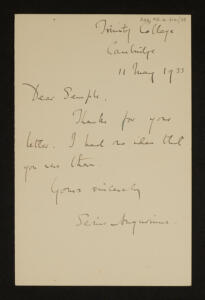 Trinity College
Cambridge
11 May 1933
Dear Semple,
Thanks for your
letter. I had no idea that
you were there.
Yours sincerely